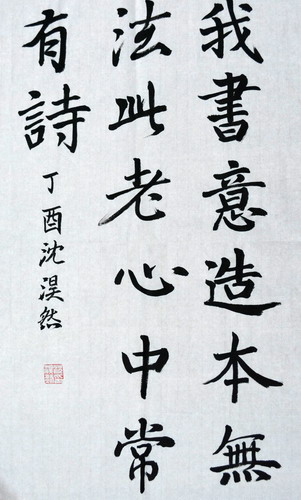 我書意造本無
法此老心中常
有詩
丁酉沈淏然